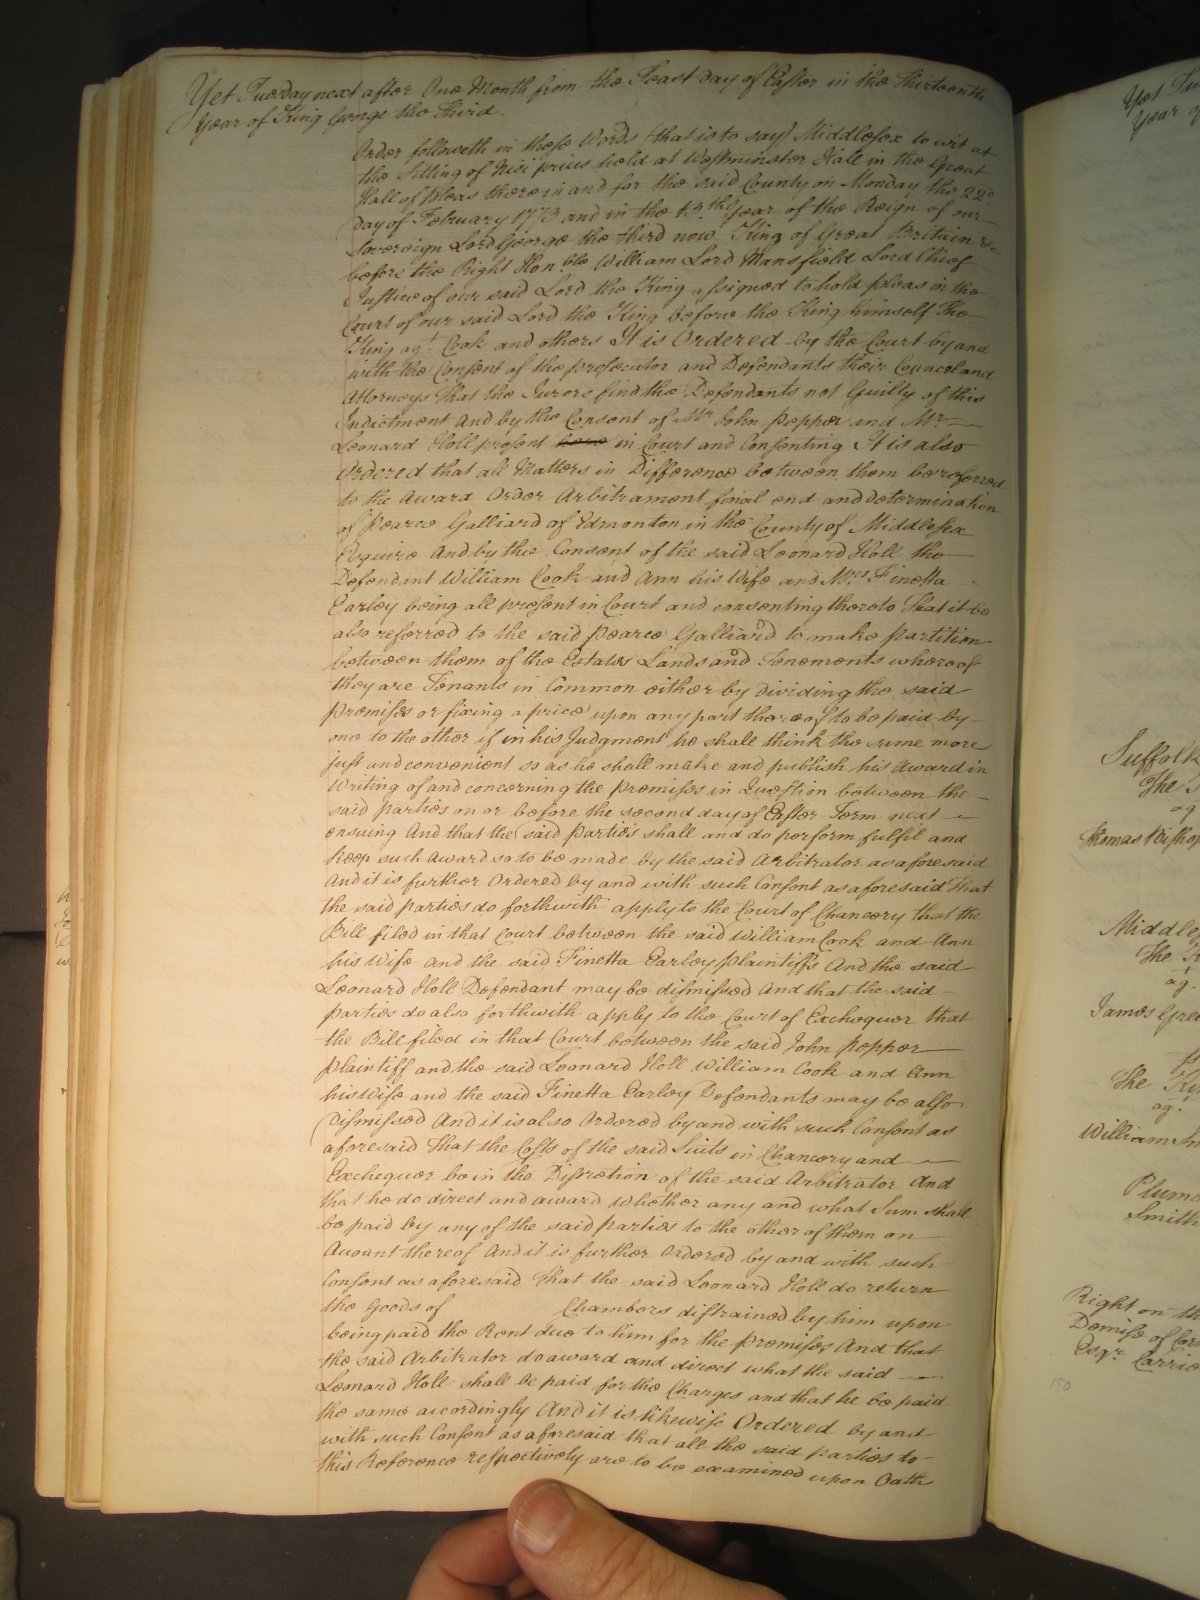 Yet Tuesday next after One Month from the Feast day of Easter in the Thirteenth
Year of King George the Third.
Order followeth in these Words (that is to say) Middlesex to wit at
the Sitting of Nisi prius held at Westminster Hall in the Great
Hall of pleas there in and for the said County on Monday the 22d
day of February 1773 and in the 13th Year of the Reign of our
Sovereign Lord George the third now King of Great Britain &c
before the Right Honble William Lord Mansfield Lord Chief
Justice of our said Lord the King assigned to hold pleas in the
Court of our said Lord the King before the King himself The
King agt. Cook and others It is Ordered by the Court by and
with the Consent of the prosecutor and Defendants their Councel and
Attorneys That the Jurors find the Defendants not Guilty of this
Indictment And by the Consent of Mr. John Pepper and Mr.
Leonard Holl present in Court and Consenting It is also
Ordered that all Matters in Difference between them be referred
to the Award Order Arbitrament final end and determination
of Pearce Galliard of Edmonton in the County of Middlesex
Esquire And by the Consent of the said Leonard Holl the
Defendant William Cook and Ann his Wife and Mrs Finetta
Earley being all present in Court and consenting thereto That it be
also referred to the said Pearce Galliard to make partition
between them of the Estates Lands and Tenements whereof
they are Tenants in Common either by dividing the said
premises or fixing a price upon any part thereof to be paid by
one to the other if in his Judgment he shall think the same more
just and convenient so as he shall make and publish his Award in
Writing of and concerning the premises in Question between the
said parties on or before the second day of Easter Term next
ensuing And that the said parties shall and do perform fulfil and
keep such Award so to be made by the said Arbitrator as aforesaid
And it is further Ordered by and with such Consent as aforesaid That
the said parties do forthwith apply to the Court of Chancery that the
Bill filed in that Court between the said William Cook and Ann
his Wife and the said Finetta Earley plaintiffs And the said
Leonard Holl Defendant may be dismissed And that the said
parties do also forthwith apply to the Court of Exchequer that
the Bill filed in that Court between the said John Pepper
plaintiff and the said Leonard Holl William Cook and Ann
his Wife and the said Finetta Earley Defendants may be also
Dismissed And it is also Ordered by and with such Consent as
aforesaid That the Costs of the said Suits in Chancery and
Exchequer be in the Discretion of the said Arbitrator And
that he do direct and award whether any and what Sum shall
be paid by any of the said parties to the other of them on
Account thereof And it is further Ordered by and with such
Consent as aforesaid That the said Leonard Holl do return
the Goods of Chambers distrained by him upon
being paid the Rent due to him for the premises And that
the said Arbitrator do award and direct what the said
Leonard Holl shall be paid for the Charges and that he be paid
the same accordingly And it is likewise Ordered by and
with such Consent as aforesaid that all the said parties to
this Reference respectively are to be examined upon Oath
Year of
Suffolk
The
ag
Thomas Bishop
The
agt.
The
agt.
William
Smith
Right on the
Demise of
Esqr.
150